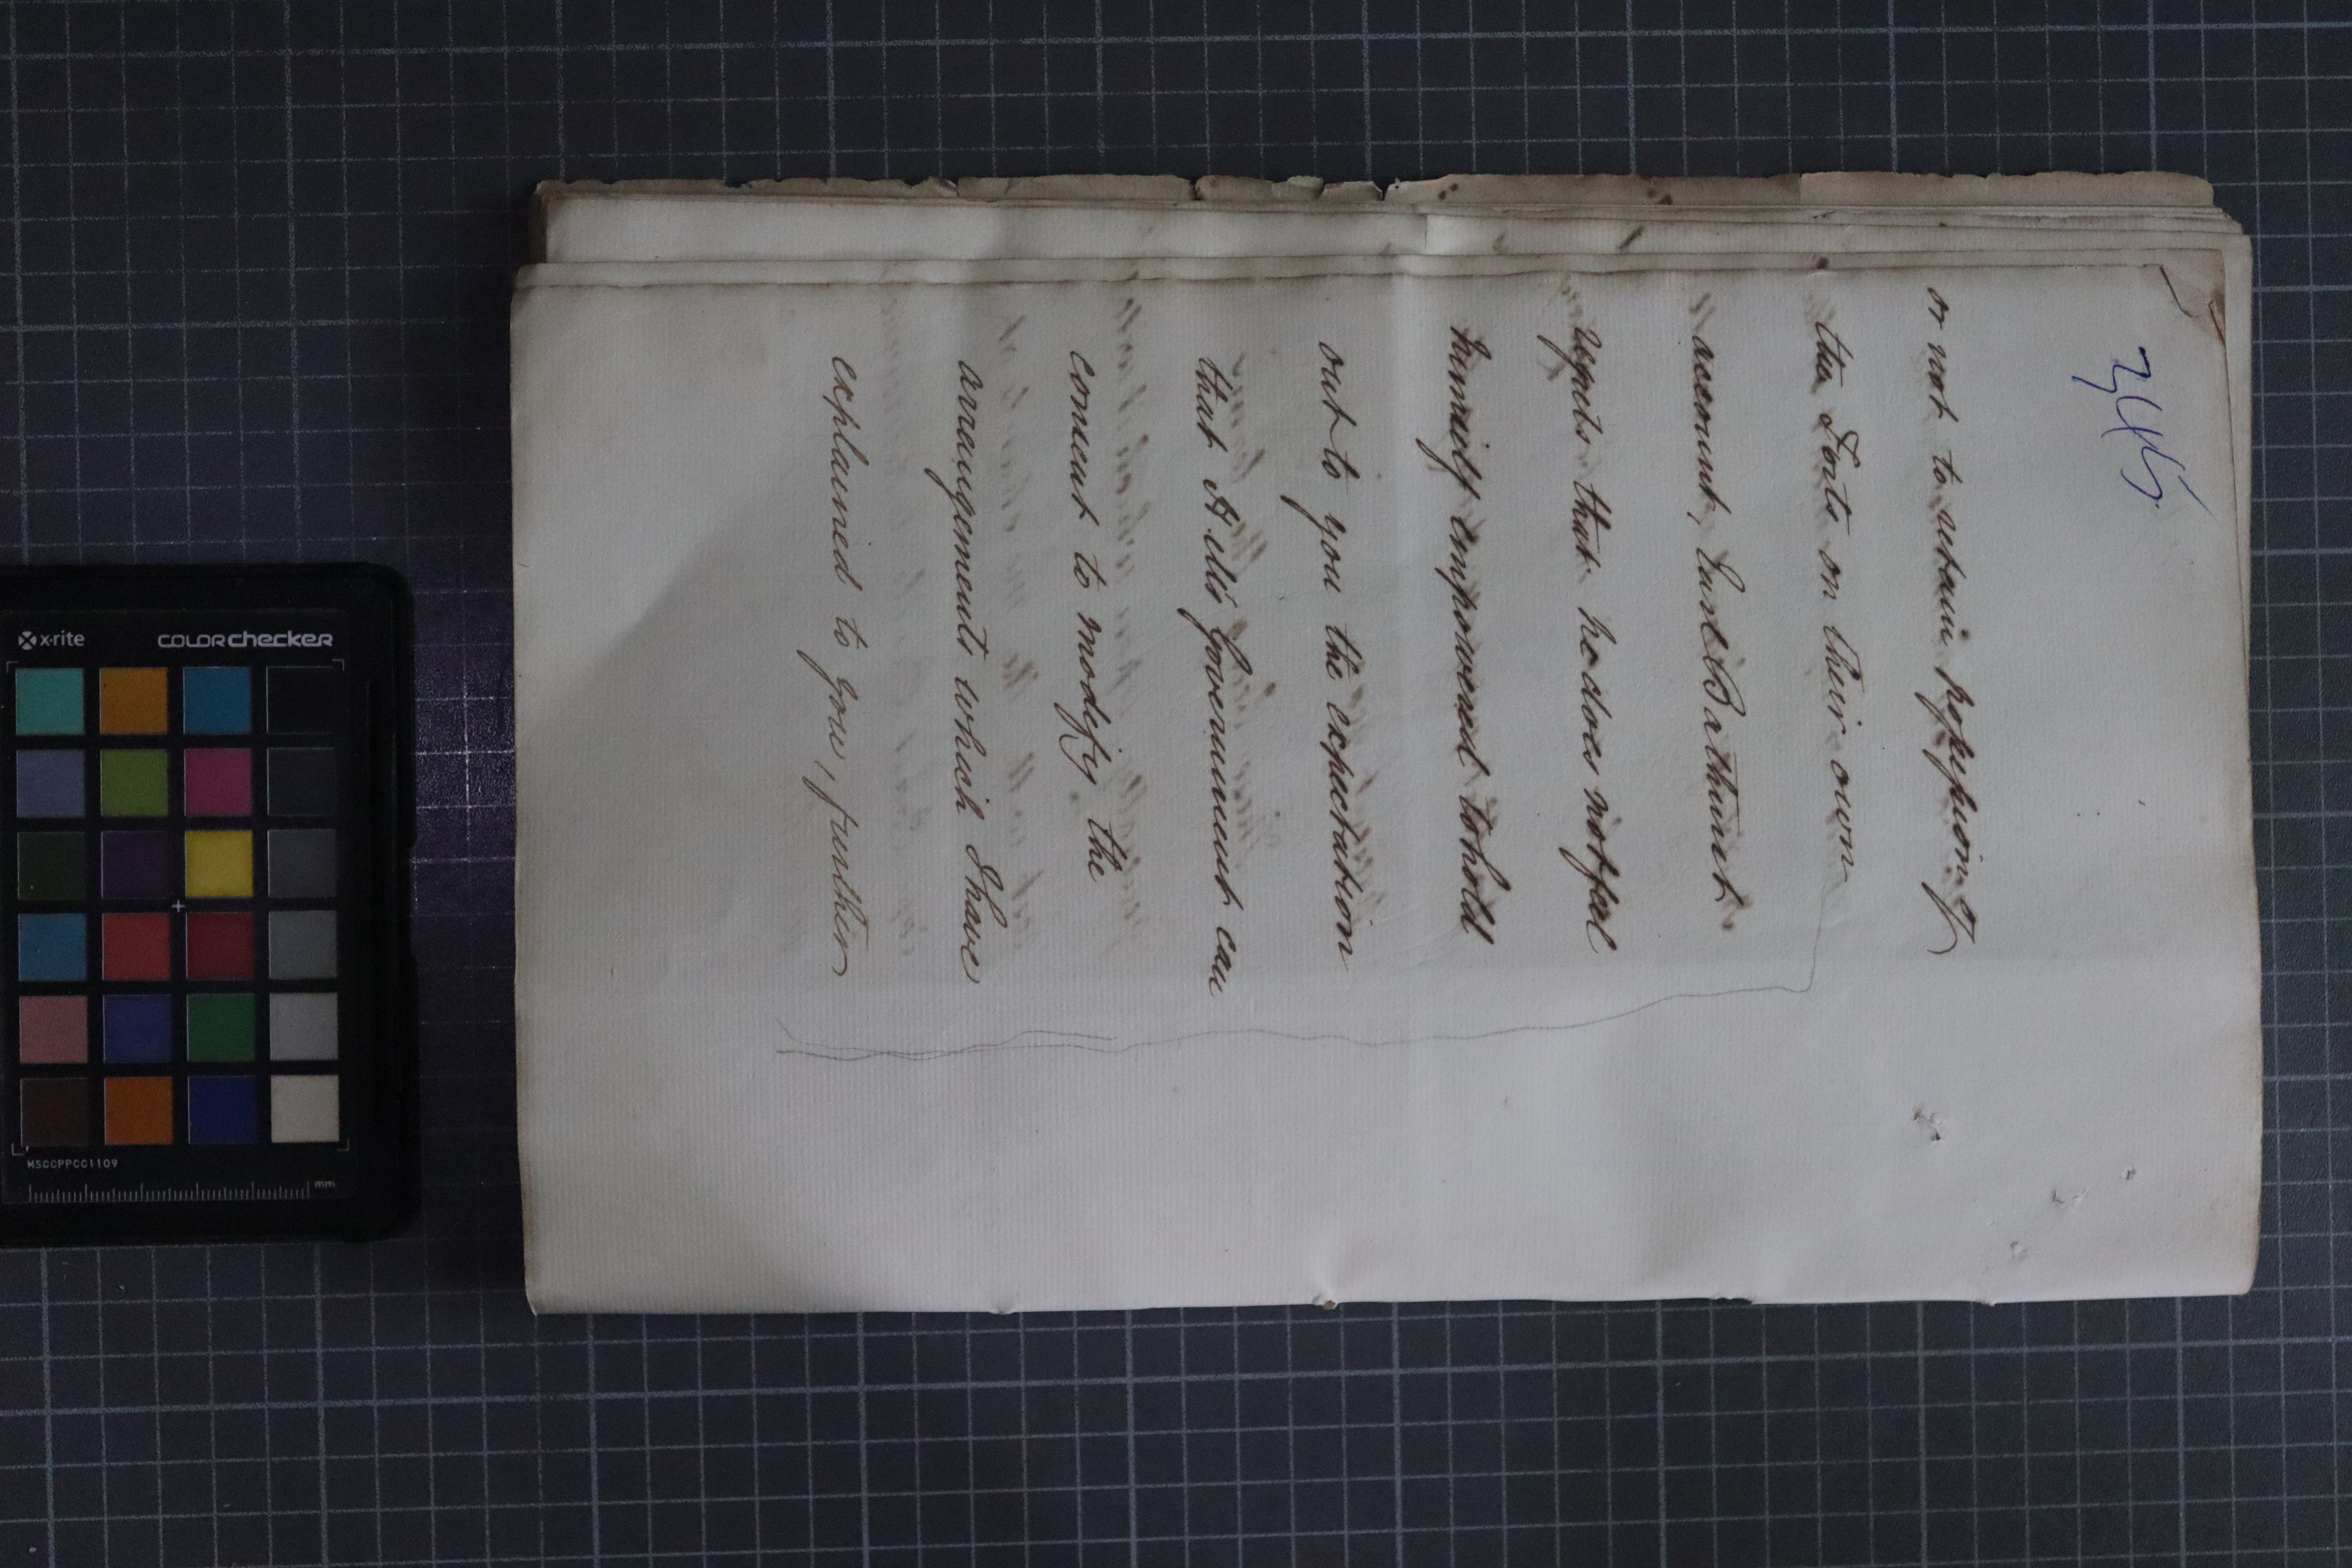 345
or not to retain possession of
the Forts on their own
account, Earl Bathurst
regrets that he does not feel
himself empowered to hold
out to you the expectation
that H. M's Government can
consent to modify the
arrangements which I have
explained to you, further
x·rite
colorchecker
MSCCPPCC1109
mm